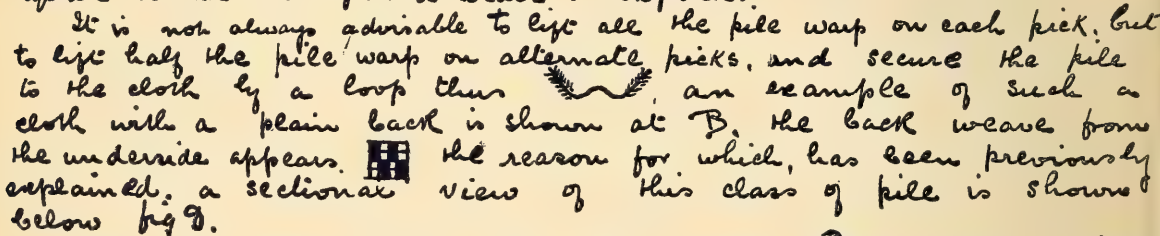 It is not always advisable to lift all the pile warp on each pick, but
to lift half the pile warp on alternate picks, and secure the pile
to the cloth by a loop thus an example of such a
cloth with a plain back is shown at B. the back weave from
the underside appears the reason for which, has been previously
explained. a sectional view of this class of pile is shown
below fig D.